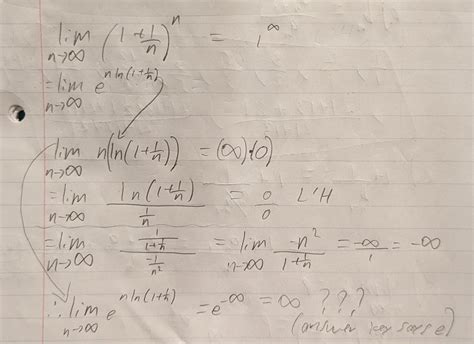 lim n→∞ (1+1/n)^n = 1^∞
= lim n→∞ e^(n ln(1+1/n))
lim n→∞ n(ln(1+1/n)) = (∞)·(0)
= lim n→∞ ln(1+1/n) / (1/n) = 0/0 L'H
= lim n→∞ (1/(1+1/n)) / (-1/n²) = lim n→∞ -n²/(1+1/n) = -∞/1 = -∞
∴ lim n→∞ e^(n ln(1+1/n)) = e^-∞ = ∞ ???
(answer key says e)